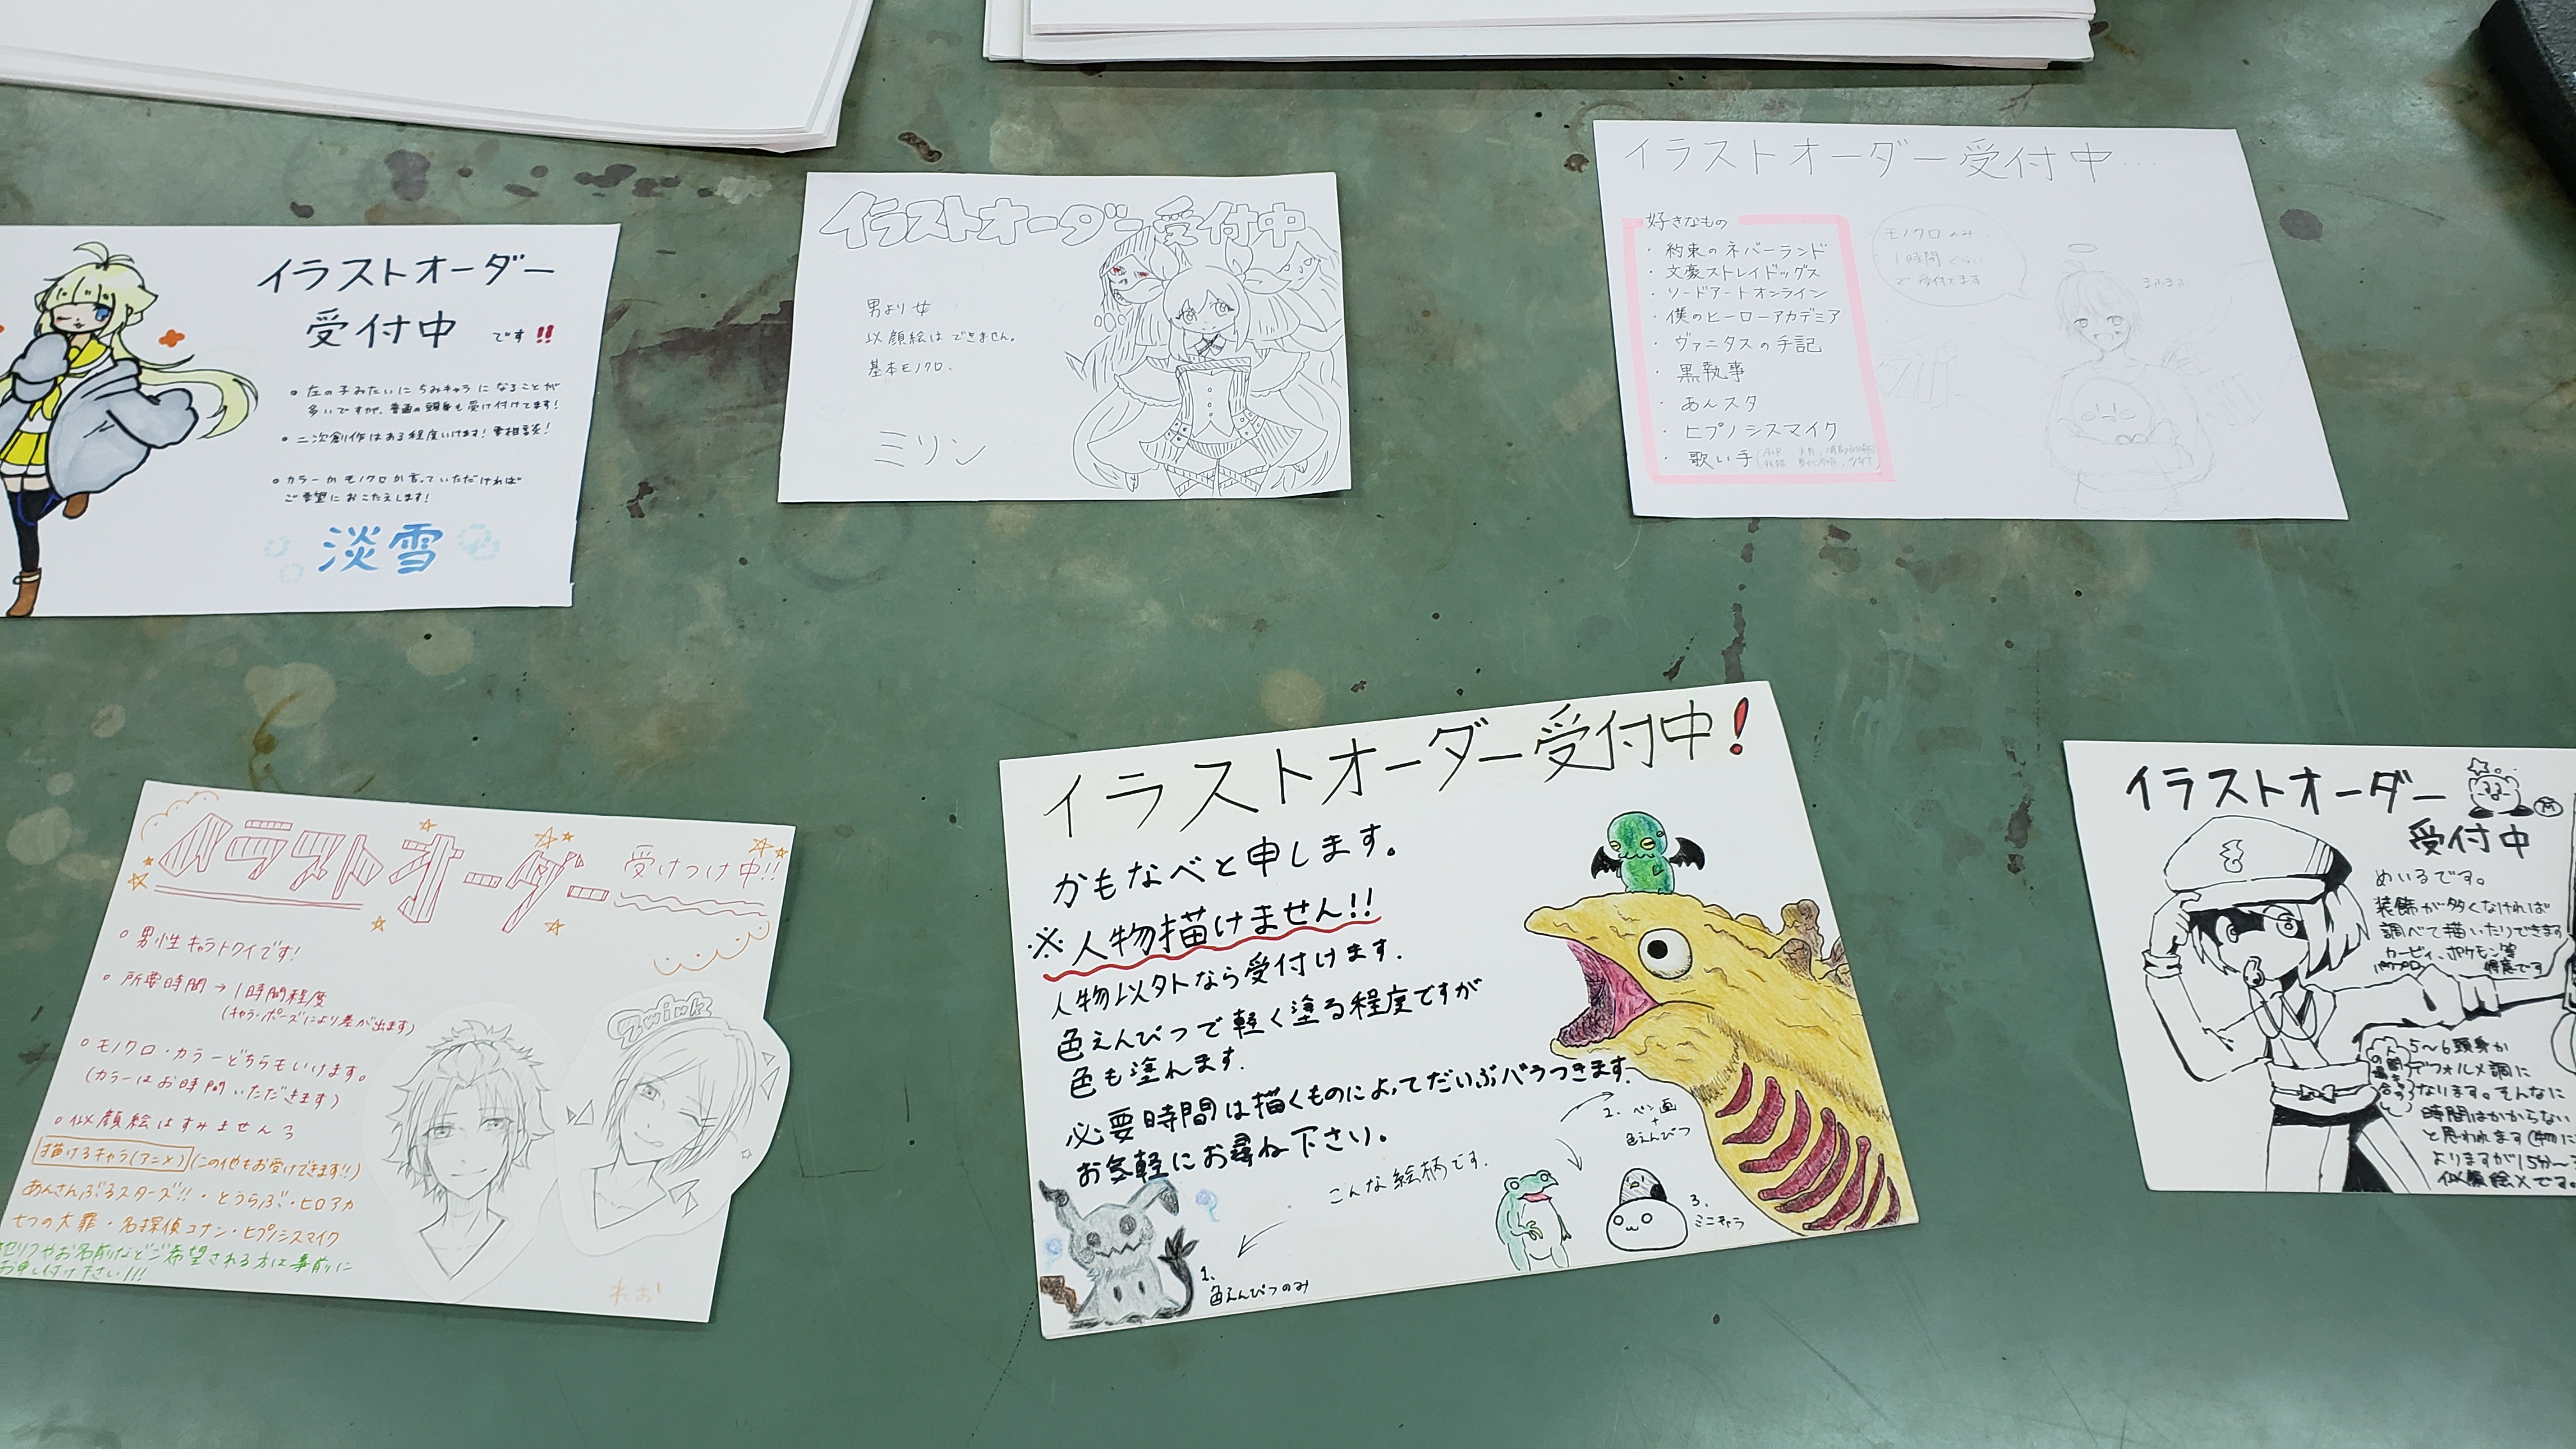 イラストオーダー
受付中 です!!
左の子みたいにちみキャラになることが
多いですが、普通の頭身も受け付けてます!
二次創作はある程度いけます!要相談!
カラーかモノクロか言っていただければ
ご希望におこたえします!
淡雪
イラストオーダー受付中
男より女
似顔絵はできません。
基本モノクロ、
ミリン
イラストオーダー受付中…
好きなもの
・約束のネバーランド
・文豪ストレイドッグス
・ソードアートオンライン
・僕のヒーローアカデミア
・ヴァニタスの手記
・黒執事
・あんスタ
・ヒプノシスマイク
・歌い手
モノクロのみ
1時間ぐらい
で受付てます
イラストオーダー 受けつけ中!!
男性キャラトクイです!
所要時間→1時間程度
(キャラ・ポーズにより差が出ます)
モノクロ・カラーどちらもいけます。
(カラーはお時間いただきます)
似顔絵はすみません
描けるキャラ(アニメ)(この他もお受けできます!!)
あんさんぶるスターズ!!・とうらぶ・ヒロアカ
七つの大罪・名探偵コナン・ヒプノシスマイク
セリフやお名前などご希望される方は事前に
お申し付け下さい!!!
れお!
イラストオーダー受付中!
かもなべと申します。
※人物描けません!!
人物以外なら受付けます.
色えんぴつで軽く塗る程度ですが
色も塗れます.
必要時間は描くものによってだいぶバラつきます.
お気軽にお尋ね下さい。
こんな絵柄です.
1.
色えんぴつのみ
2. ペン画
+
色えんぴつ
3.
ミニキャラ
イラストオーダー
受付中
めいるです。
装飾が多くなければ
調べて描いたりできます
カービィ、ポケモン等
パワプロ 得意です
5〜6頭身か
デフォルメ調に
なります。そんなに
時間はかからない
と思われます(物に
よりますが15分〜
似顔絵×です。